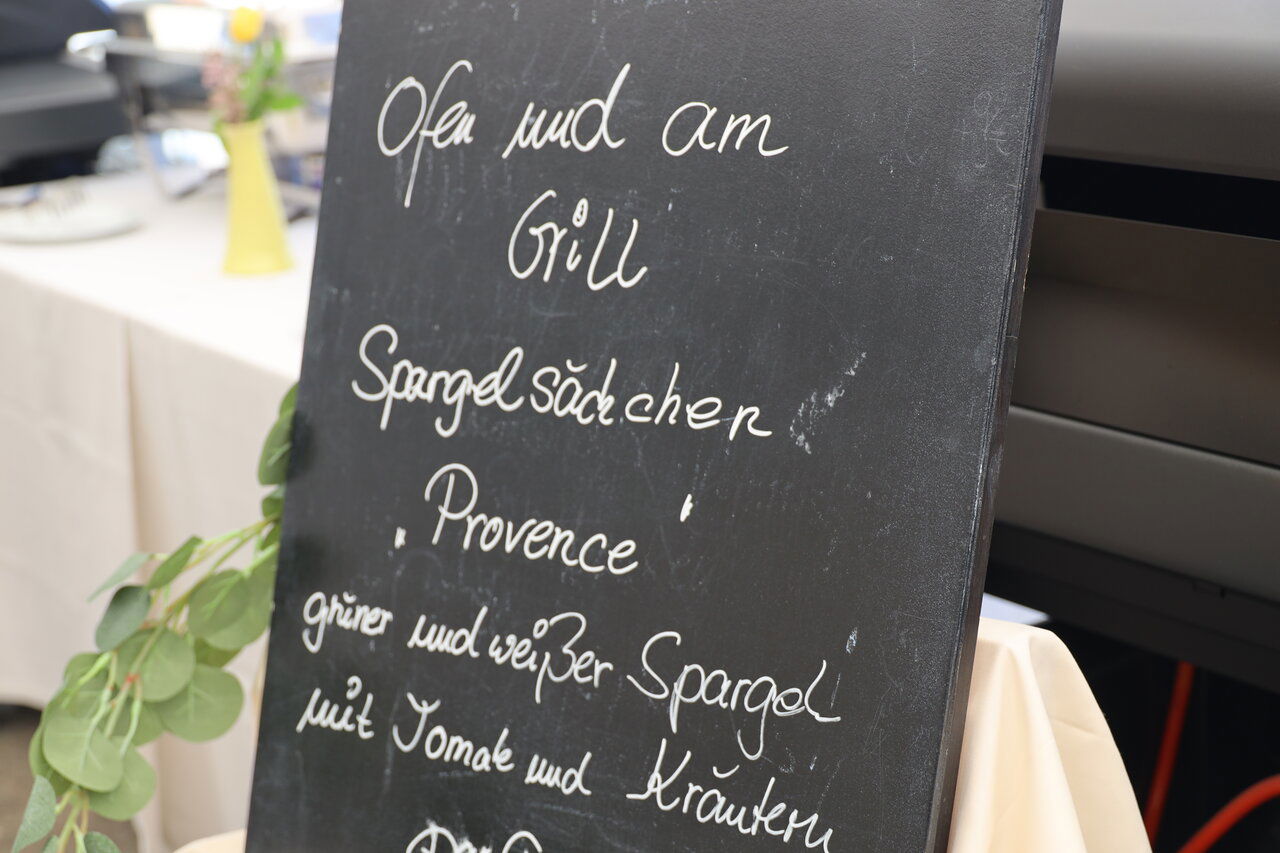 Ofen und am
Grill
Spargelsäckchen
„Provence"
grüner und weißer Spargel
mit Tomate und Kräutern